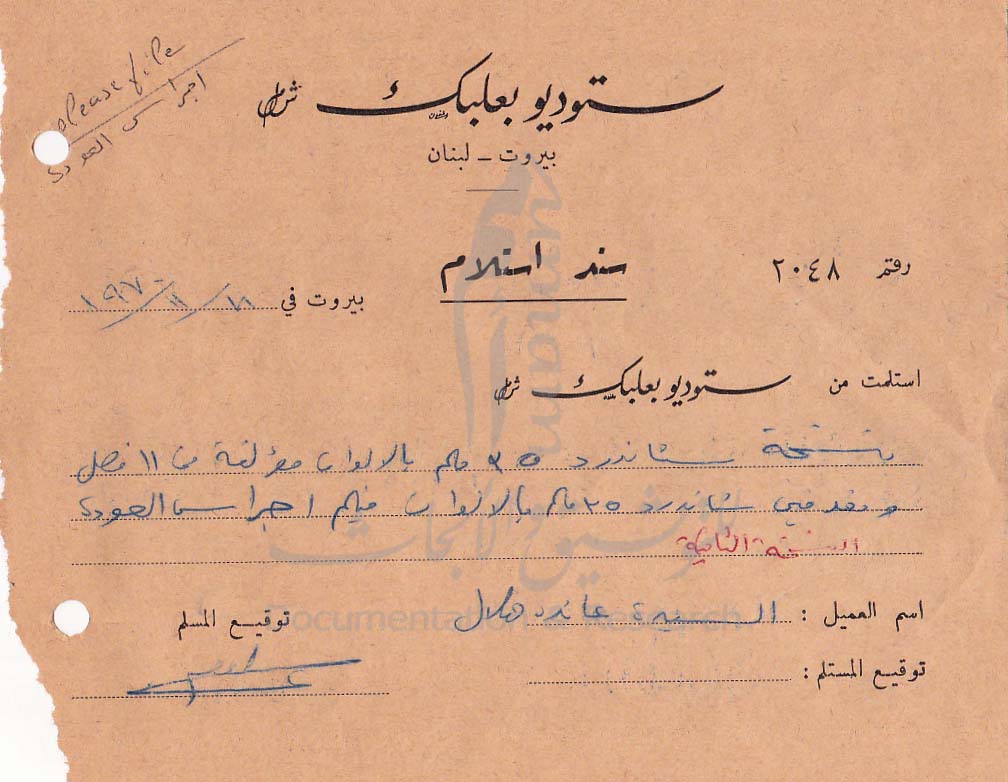 please file
اجراس العودة
ستوديو بعلبك ش.م.ل
بيروت - لبنان
رقم ٢٠٤٨
سند استلام
بيروت في ١٨/ ١١/ ١٩٧٠
استلمت من ستوديو بعلبك ش.م.ل
نسخة ستاندرد ٣٥ ملم بالالوان مؤلفة من ١١ فصل
و مقدمتي ستاندرد ٣٥ ملم بالالوان فيلم اجراس العودة
النسخة الثانية
اسم العميل : السيد عائد هلال
توقيع المسلم
توقيع المستلم :
Documentation & Research